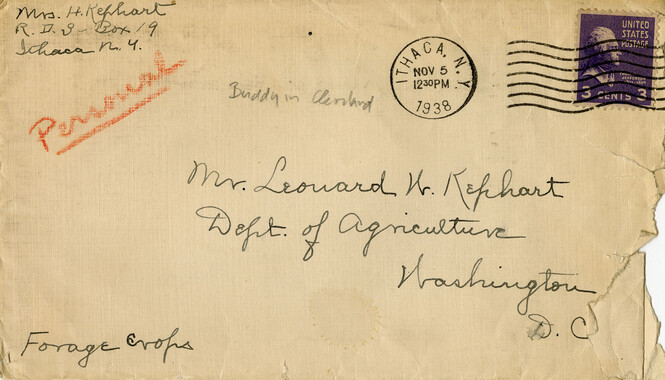 Mrs. H. Kephart
R. D. 3 - Box 19
Ithaca N. Y.
Personal
Buddy in Cleveland
ITHACA, N.Y.
NOV 5
12 30 PM
1938
UNITED
STATES
POSTAGE
3 CENTS 3
Mr. Leonard W. Kephart
Dept. of Agriculture
Washington
D. C
Forage Crops